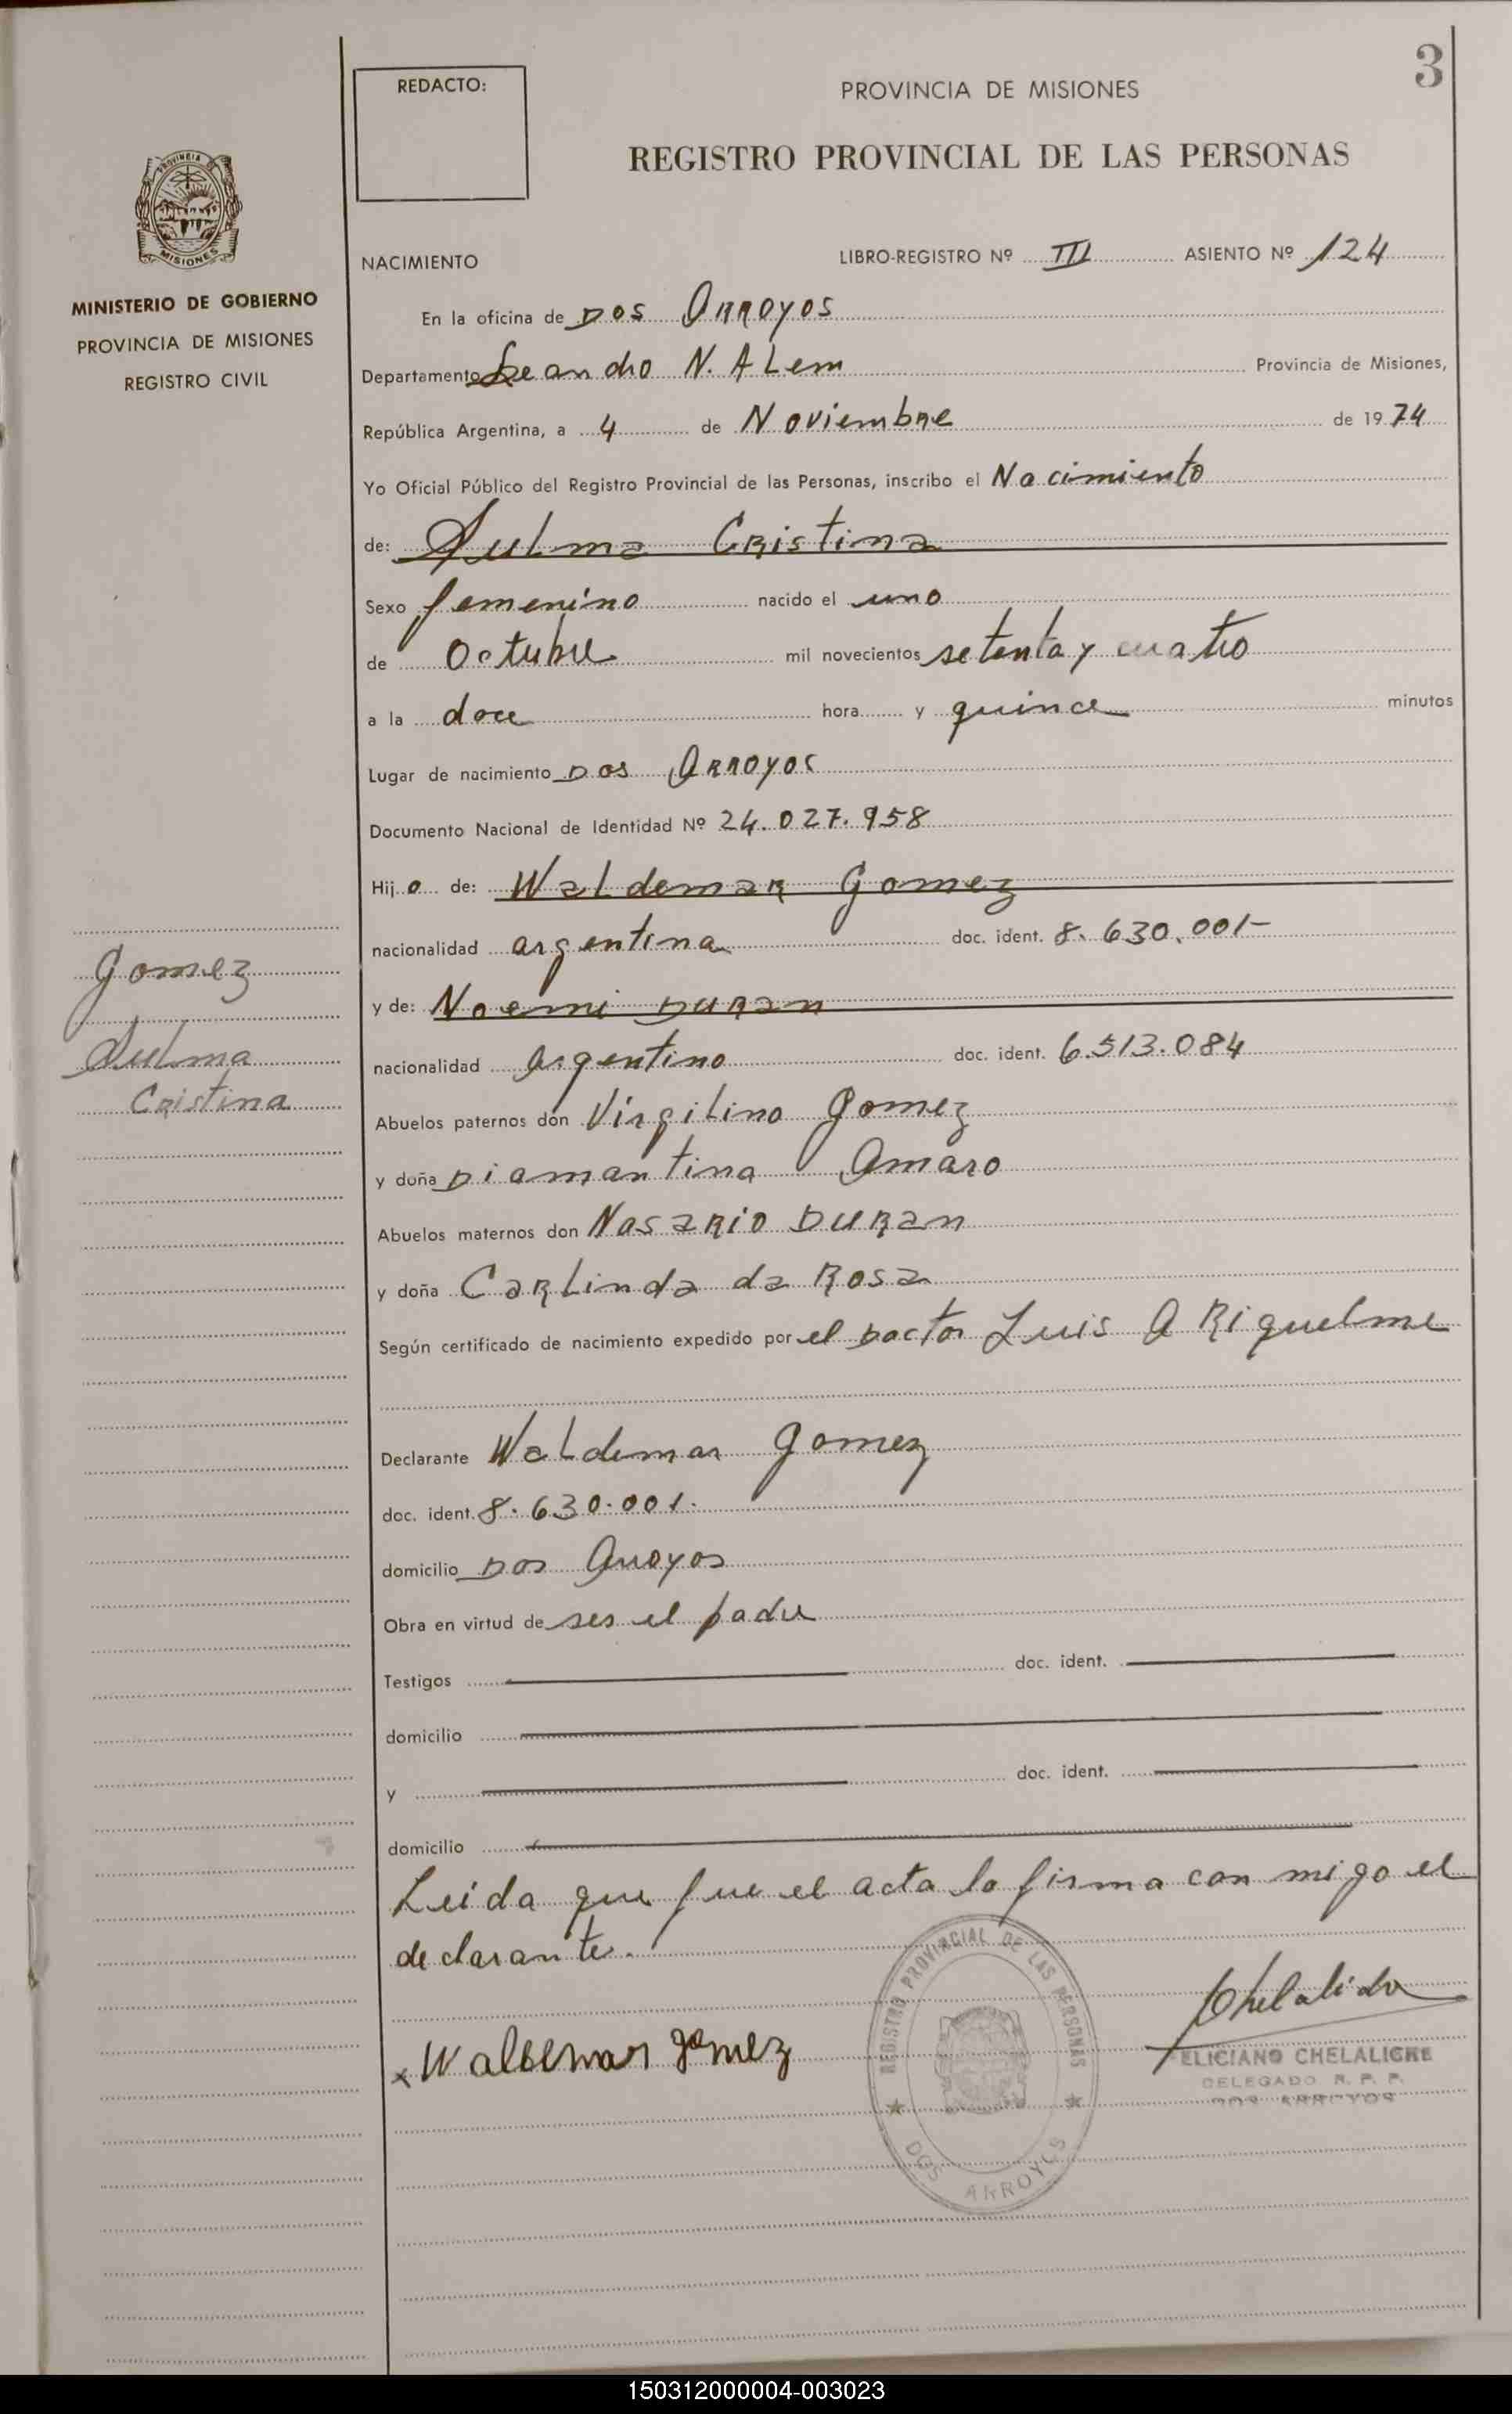 3
REDACTO:
PROVINCIA DE MISIONES
REGISTRO PROVINCIAL DE LAS PERSONAS
PROVINCIA DE
MISIONES
MINISTERIO DE GOBIERNO
PROVINCIA DE MISIONES
REGISTRO CIVIL
NACIMIENTO LIBRO-REGISTRO Nº III ASIENTO Nº 124
En la oficina de Dos Arroyos
Departamento Leandro N. Alem Provincia de Misiones,
República Argentina, a 4 de Noviembre de 1974
Yo Oficial Público del Registro Provincial de las Personas, inscribo el Nacimiento
de: Sulma Cristina
Sexo femenino nacido el uno
de Octubre mil novecientos setenta y cuatro
a la doce hora y quince minutos
Lugar de nacimiento Dos Arroyos
Documento Nacional de Identidad Nº 24.027.958
Hijo de: Waldemar Gomez
nacionalidad argentina doc. ident. 8.630.001-
y de: Noemi Duran
nacionalidad Argentino doc. ident. 6.513.084
Abuelos paternos don Virgilino Gomez
y doña Diamantina Amaro
Abuelos maternos don Nasario Duran
y doña Carlinda da Rosa
Según certificado de nacimiento expedido por el Doctor Luis A Riquelme
Declarante Waldemar Gomez
doc. ident. 8.630.001.
domicilio Dos Arroyos
Obra en virtud de ser el padre
Testigos doc. ident.
domicilio
y doc. ident.
domicilio
Leida que fue el acta la firma con migo el
declarante.
x Waldemar gomez
Gomez
Sulma
Cristina
REGISTRO PROVINCIAL DE LAS PERSONAS
DOS ARROYOS
ELICIANO CHELALICHE
DELEGADO R. P. P.
DOS ARROYOS
150312000004-003023